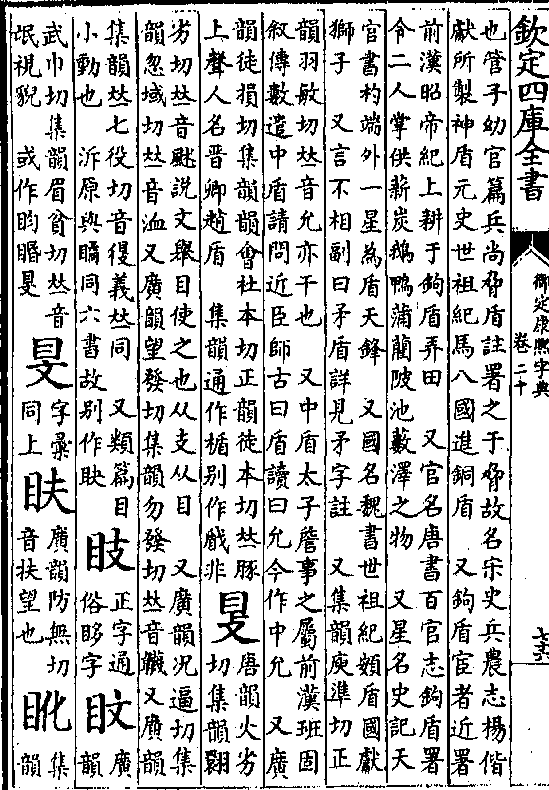 欽定四庫全書
御定康熙字典
卷二十
也管子幼官篇兵尚脅盾註署之于脅故名宋史兵農志楊偕
獻所製神盾元史世祖紀馬八國進銅盾 又鉤盾宦者近署
前漢昭帝紀上耕于鉤盾弄田 又官名唐書百官志鉤盾署
令二人掌供薪炭鵝鴨蒲藺陂池藪澤之物 又星名史記天
官書杓端外一星為盾天鋒 又國名魏書世祖紀頞盾國獻
獅子 又言不相副曰矛盾詳見矛字註 又集韻庾準切正
韻羽敏切𠀤音允亦干也 又中盾太子詹事之屬前漢班固
敘傳數遣中盾請問近臣師古曰盾讀曰允今作中允 又廣
韻徒損切集韻韻會杜本切正韻徒本切𠀤豚
上聲人名晉卿趙盾 集韻通作楯别作戲非
𥄎
唐韻火劣
切集韻翾
劣切𠀤音䫻說文舉目使之也从攴从目 又廣韻況逼切集
韻忽域切𠀤音洫又廣韻望發切集韻勿發切𠀤音韈又廣韻
集韻𠀤七役切音䙷義𠀤同 又類篇目
小動也 泝原與瞲同六書故别作䀗
䀢
正字通
俗眵字
盿
廣
韻
武巾切集韻眉貧切𠀤音
氓視貌 或作盷䁕旻
旻
字彙
同上
䀐
廣韻防無切
音扶望也
䀑
集
韻